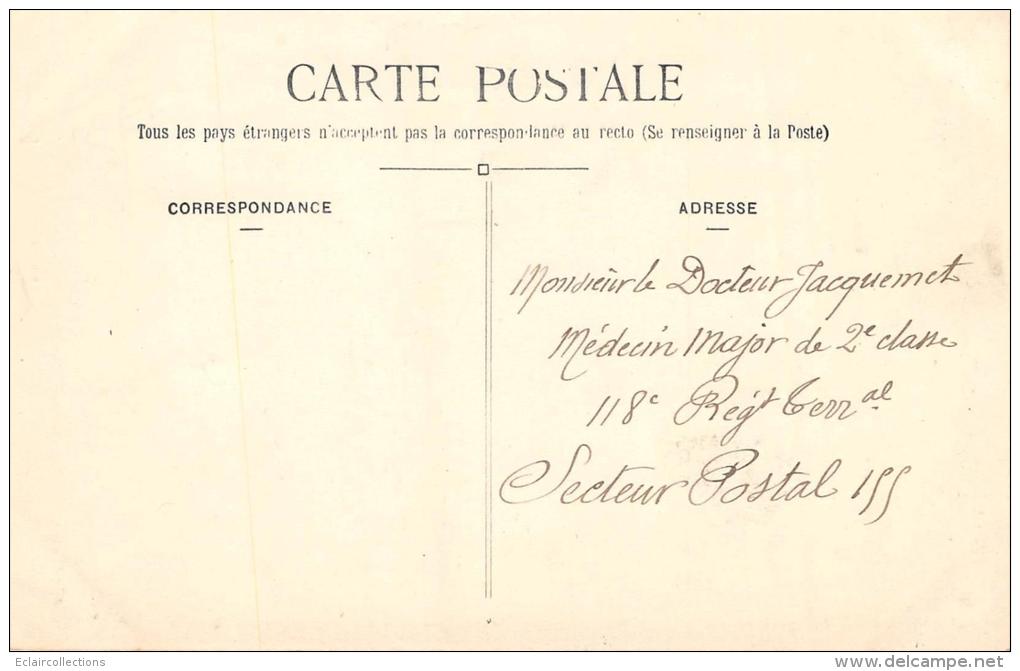 CARTE POSTALE
Tous les pays étrangers n'acceptent pas la correspondance au recto (Se renseigner à la Poste)
CORRESPONDANCE
ADRESSE
Monsieur le Docteur Jacquemet
Médecin Major de 2e classe
118e Régt Terr.al
Secteur Postal 155
Eclaircollections
www.delcampe.net